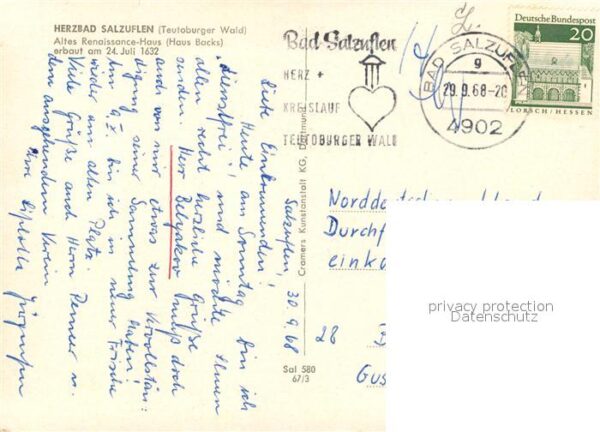 HERZBAD SALZUFLEN (Teutoburger Wald)
Altes Renaissance-Haus (Haus Backs)
erbaut am 24. Juli 1632
Bad Salzuflen
HERZ +
KREISLAUF
TEUTOBURGER WALD
BAD SALZUFLEN
g
29.9.68-20
4902
Deutsche Bundespost
20
LORSCH/HESSEN
Salzuflen, 30.9.68
Liebe
Heute am Sonntag bin ich
"dienstfrei"! und möchte Ihnen
allen recht herzliche Grüße
senden. Herr Belyakov muß doch
auch von mir etwas zur Vervollstän-
digung seiner Sammlung haben!
Am 9.X. bin ich in neuer Frische
wieder am alten Platz.
Viele Grüße auch Herrn u.
dem ausgehenden Verein
Ihre
Cramers Kunstanstalt KG, Dortmund
Sal 580
67/3
Durchf
einka
28
Gus
privacy protection
Datenschutz